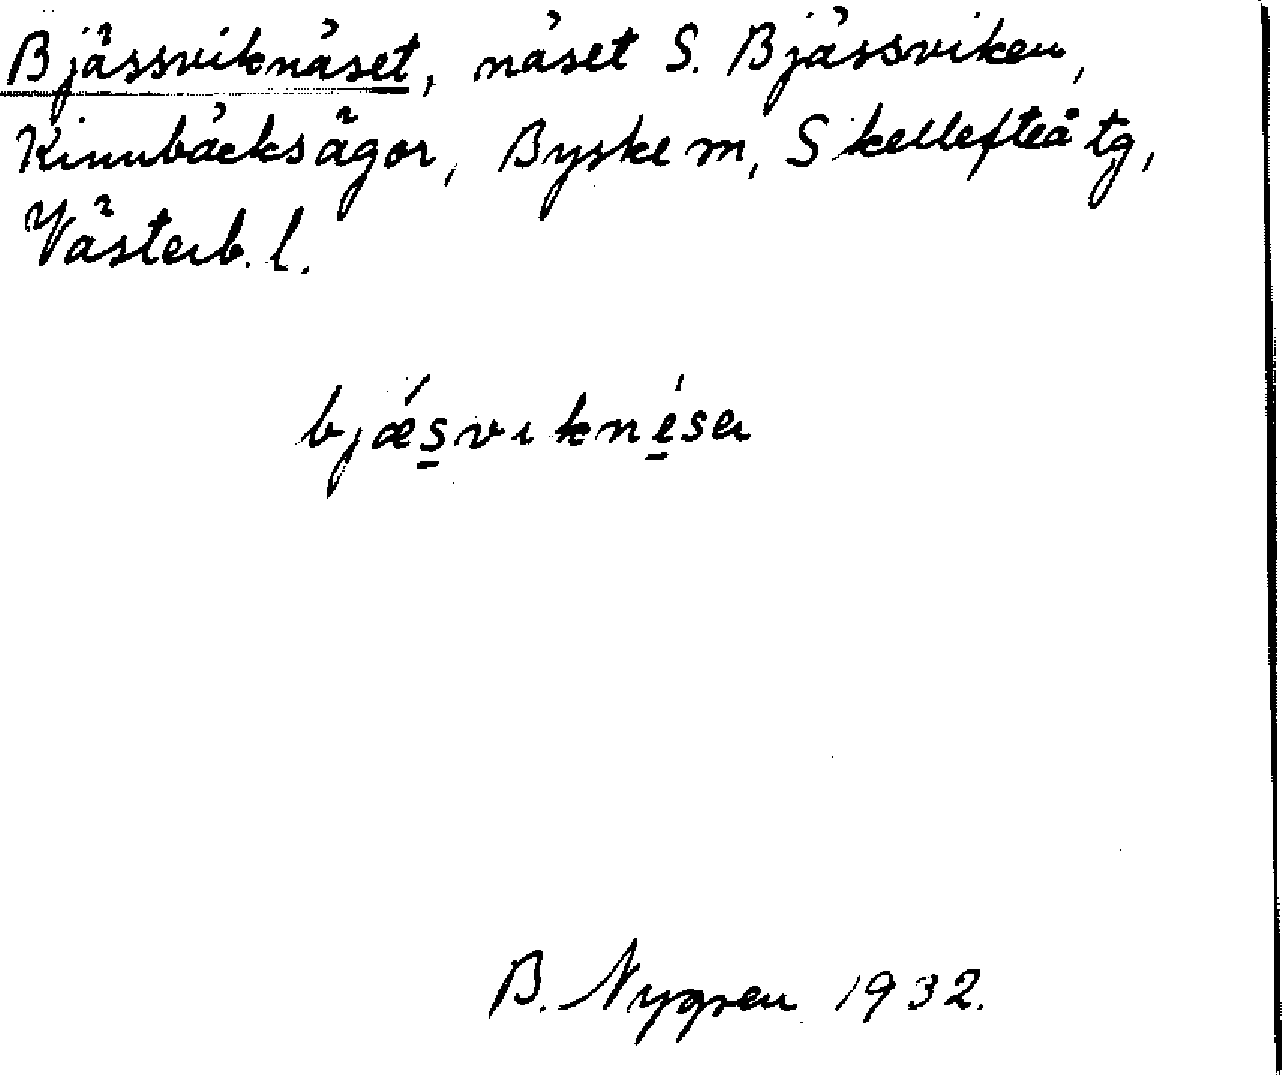 Bjässviknäset, näset S. Bjässviken,
Kinnbäcksägor, Byske m, Skellefteå tg,
Västerb. l.
bjǽs̱vıkné̱sa
B. Nygren 1932.